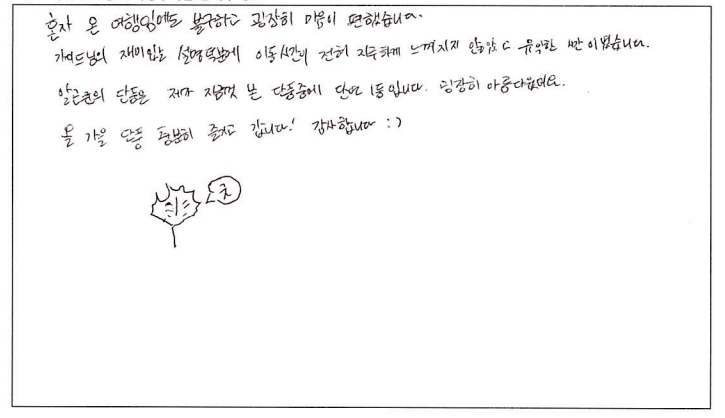 혼자 온 여행임에도 불구하고 굉장히 마음이 편했습니다.
가이드님의 재미있는 설명덕분에 이동시간이 전혀 지루하게 느껴지지 않았고 유익한 시간이었습니다.
알곤퀸의 단풍은 제가 지금껏 본 단풍중에 단연 1등입니다. 굉장히 아름다웠어요.
올 가을 단풍 충분히 즐기고 갑니다! 감사합니다 :)